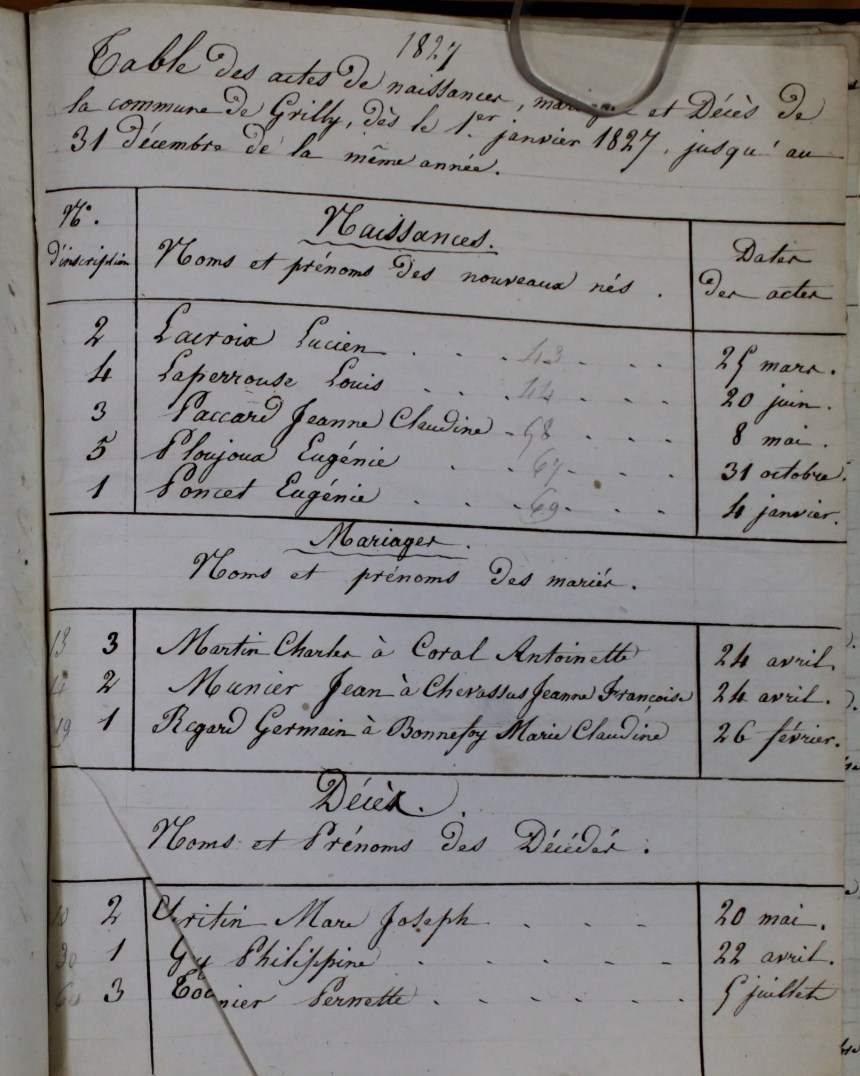 1827
Table des actes de naissances, mariages et Décès de
la commune de Grilly, dès le 1er janvier 1827, jusqu'au
31 décembre de la même année.
N°. d'inscription
Naissances.
Noms et prénoms des nouveaux nés.
Dates des actes
2 Lacroix Lucien . . . 43 . . . 25 mars.
4 Laperrouse Louis . . . 44 . . . 20 juin.
3 Paccard Jeanne Claudine . 58 . . . 8 mai.
5 Ploujoux Eugénie . . 67 . . . 31 octobre.
1 Poncet Eugénie . . . 69 . . . 4 janvier.
Mariages.
Noms et prénoms des mariés.
3 Martin Charles à Coral Antoinette 24 avril.
2 Munier Jean à Chevassus Jeanne Françoise 24 avril.
19 1 Regard Germain à Bonnefoy Marie Claudine 26 février.
Décès.
Noms et Prénoms des Décédés.
2 Marc Joseph . . . . 20 mai.
30 1 Gy Philippine . . . . . . 22 avril.
3 Pernette . . . . . . 5 juillet